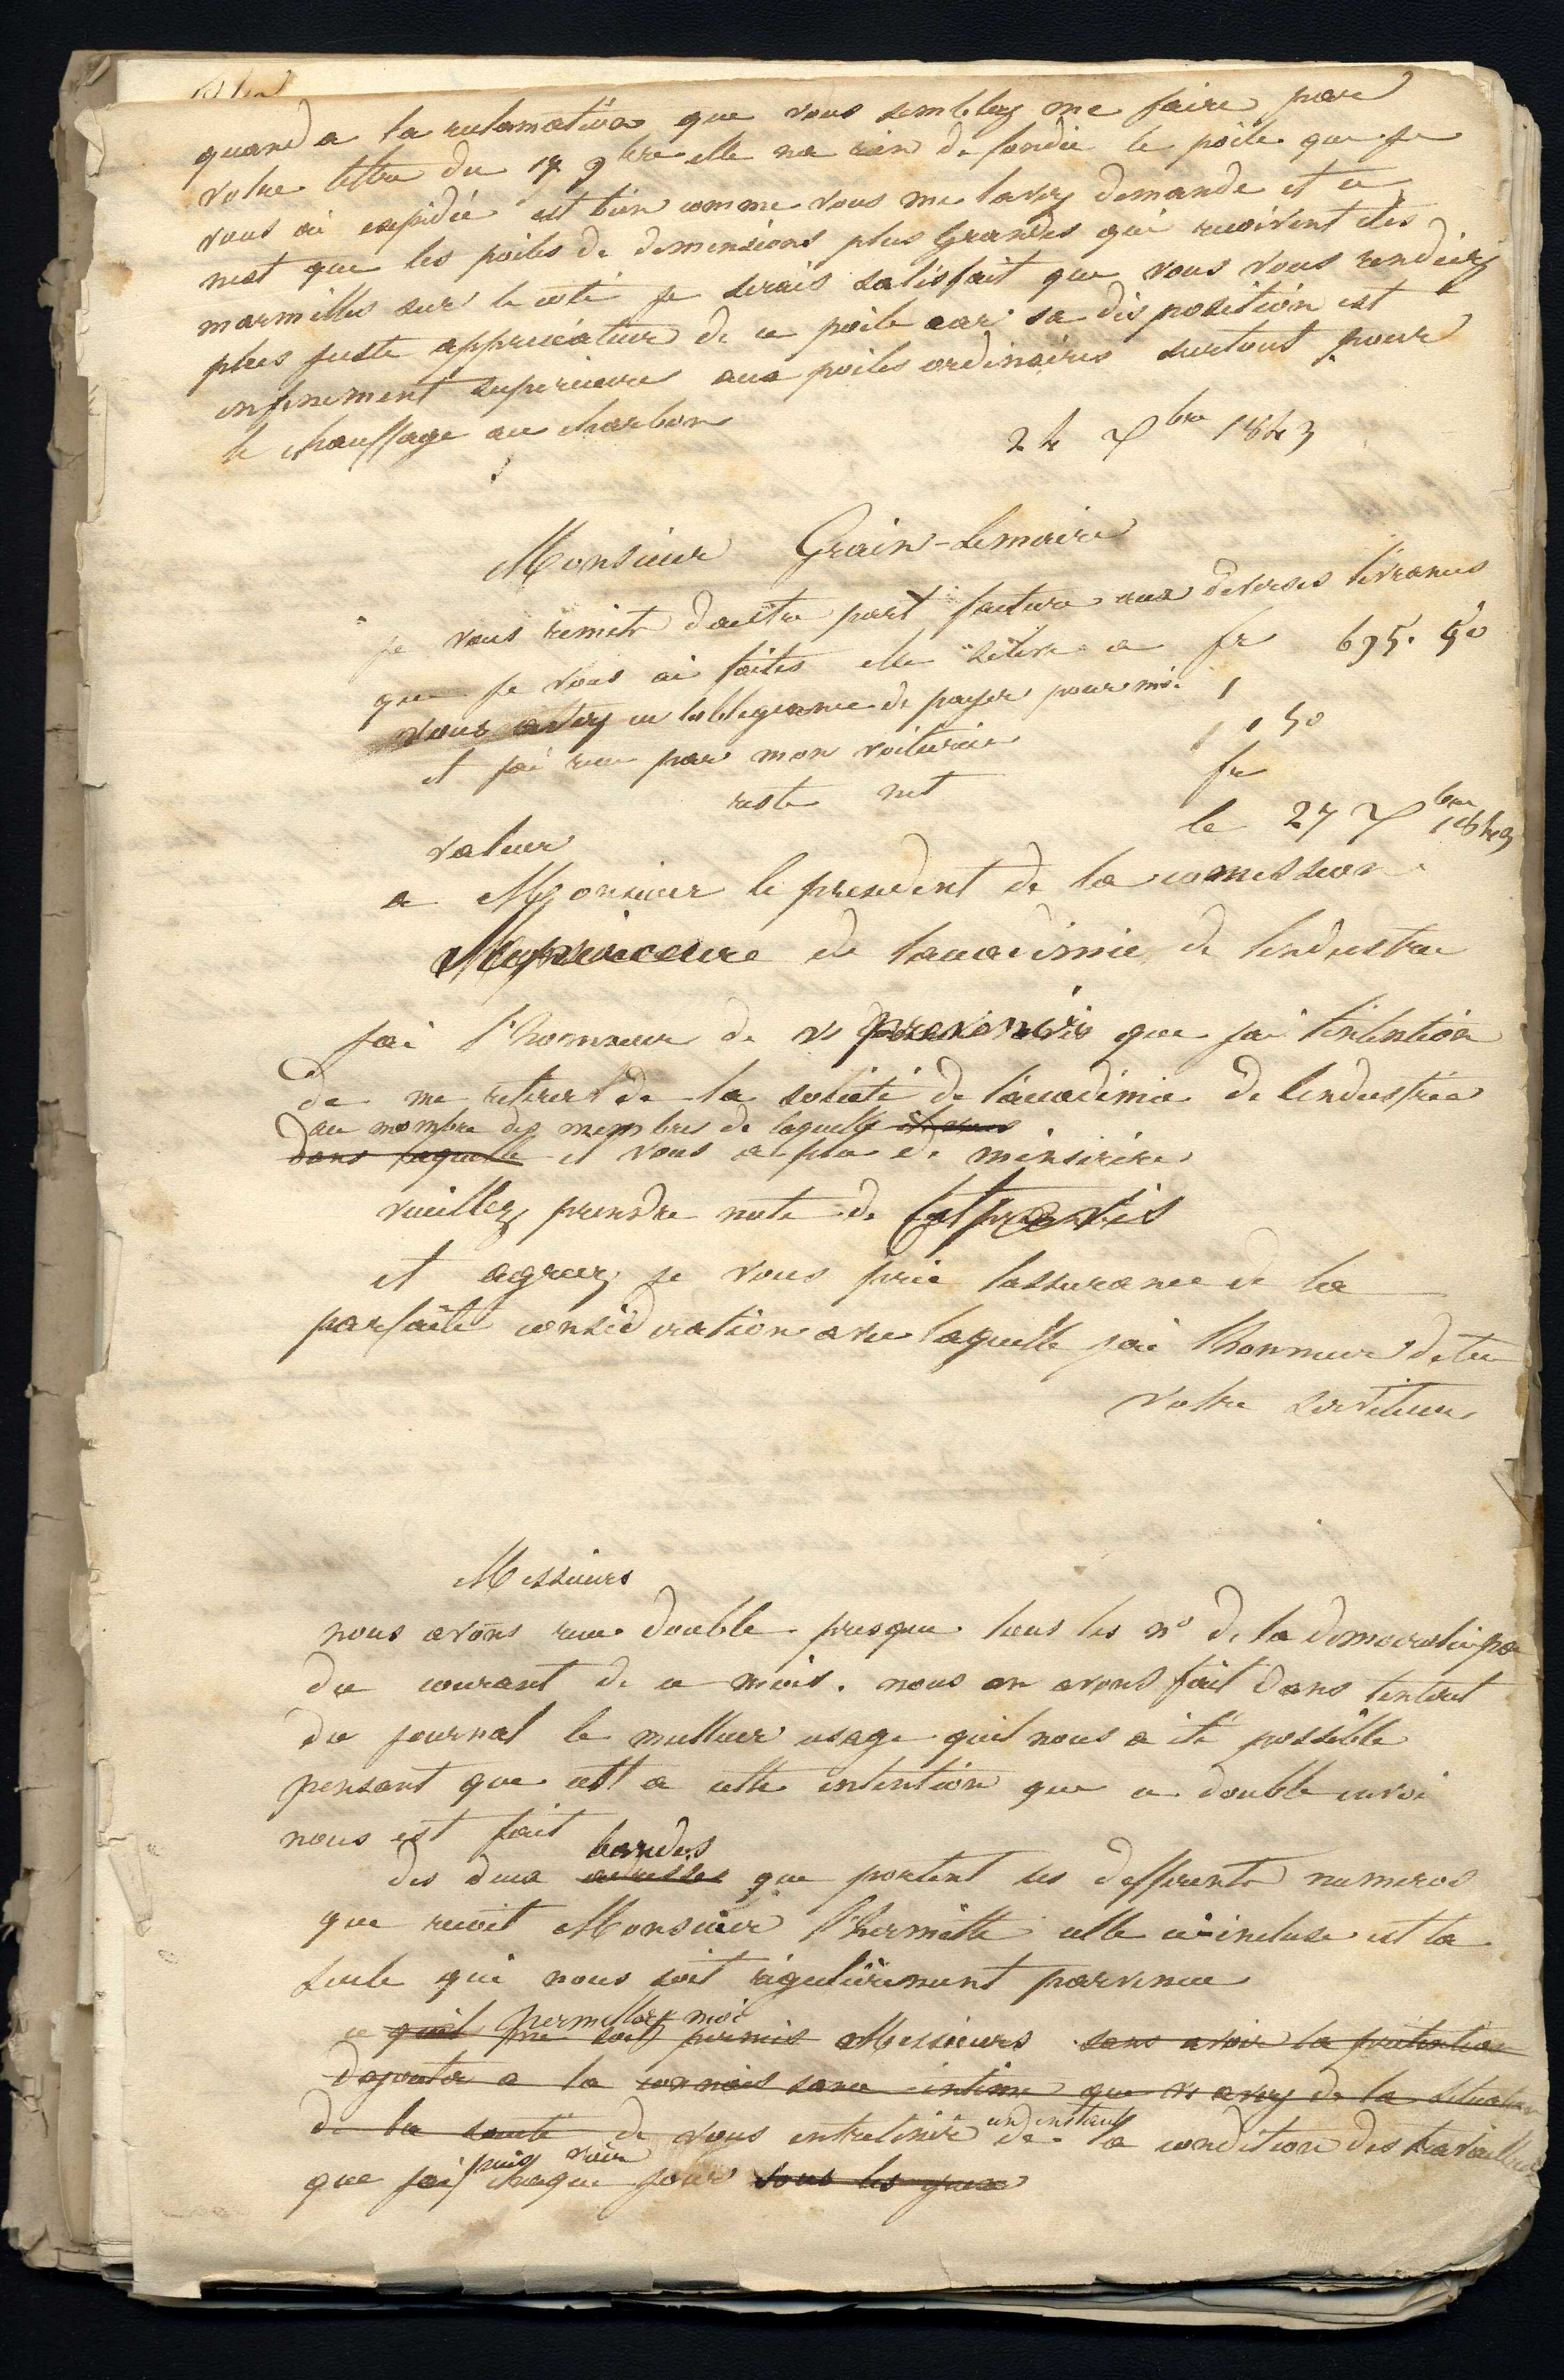 quand a la reclamation que vous semblez me faire par
votre lettre du 17 9bre elle na rien de fondée le poële que je
vous ai expidié est bien comme vous me lavez demande et ce
nest que les poëles de demensions plus Grandes qui recoivent des
marmittes sur le coté je serais satisfait que vous vous rendiez
plus juste appreciateur de ce poële car sa disposition est
infinement superieure aux poëles ordinaires surtout pour
le chauffage au charbon
24 Xbre 1843
Monsieur Grain-Lemaire
je vous remets dautre part facture aux diverses livraisons
que je vous ai faites elle séleve a fr 695. 50
vous avez eu lobligeance de payer pour moi
et jai recu par mon voiturier 50
reste net fr
valeur
le 27 Xbre 1843
a Monsieur le president de la comission
de lacademie de lindustrie
jai l'honneur de vs prevenir que jai lintention
de me retirer de la société de l'academie de lindustrie
au nombre des membres de laquelle il vous
dans laquelle il vous a plu de minscrire
veuillez prendre note de cet avis
et agreez je vous prie lassurance de la
parfaite consideration avec laquelle jai lhonneur detre
votre serviteur
Messieurs
nous avons recu double presque tous les no de la democratie pa
du courant de ce mois. nous en avons fait dans linteret
du journal le meilleur usage quil nous a été possible
pensant que cest a cette intention que ce double envoi
nous est fait
bandes
des deux adresses que portent les differents numeros
que recoit Monsieur l'hermitte celle ci-incluse est la
seule qui nous soit régulièrement parvenue
permettez moi
ce quil me soit permis Messieurs sans avoir la pretention
dajouter a la connaissance intime que vs avez de la situation
de la société de vous entretenir un instant de la condition des travailleurs
puis voir
que jai chaque jour sous les yeux